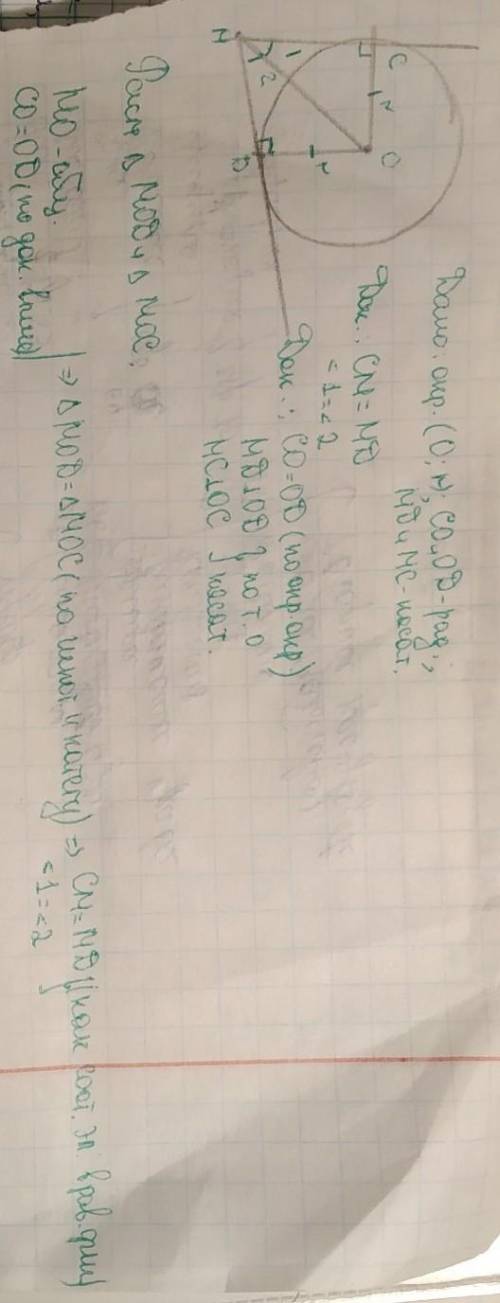 M
1
2
C
r
O
r
D
Дано: окр. (O; r), CO и OD - рад.,
MD и MC - касат.
Док.: CM = MD
<1 = <2
Док.: CO = OD (по окр.)
MD⊥OD } по т. о
MC⊥OC } касат.
Расм △ MOD и △ MOC:
MO - общ.
CO = OD (по док. выше)
=> △MOD = △MOC (по гипот. и катету) => CM = MD
<1 = <2
} как соот. эл. в рав. фиг)